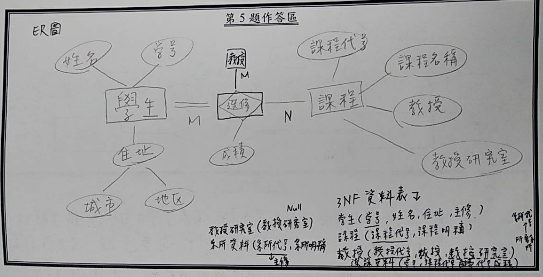 第5題作答區
ER圖
姓名
學号
教授
M
課程代号
課程名稱
學生
M
選修
N
課程
教授
住址
成績
教授研究室
城市
地区
Null
教授研究室(教授研究室)
系所資料(系所代号,系所明稱)
主修
3NF 資料表
学生(学号,姓名,住址,主修)
課程(課程代号,課程明稱)
教授(教授代号,教授,教授研究室)